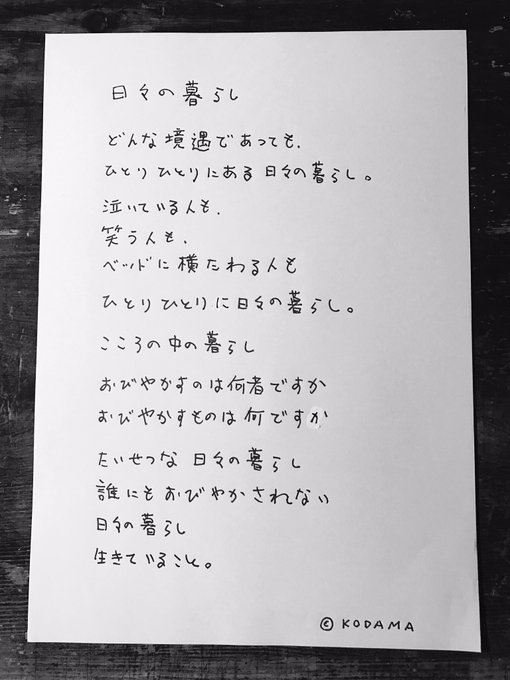 日々の暮らし
どんな境遇であっても、
ひとりひとりにある日々の暮らし。
泣いている人も、
笑う人も、
ベッドに横たわる人も
ひとりひとりに日々の暮らし。
こころの中の暮らし
おびやかすのは何者ですか
おびやかすものは何ですか
たいせつな 日々の暮らし
誰にもおびやかされない
日々の暮らし
生きていること。
© KODAMA